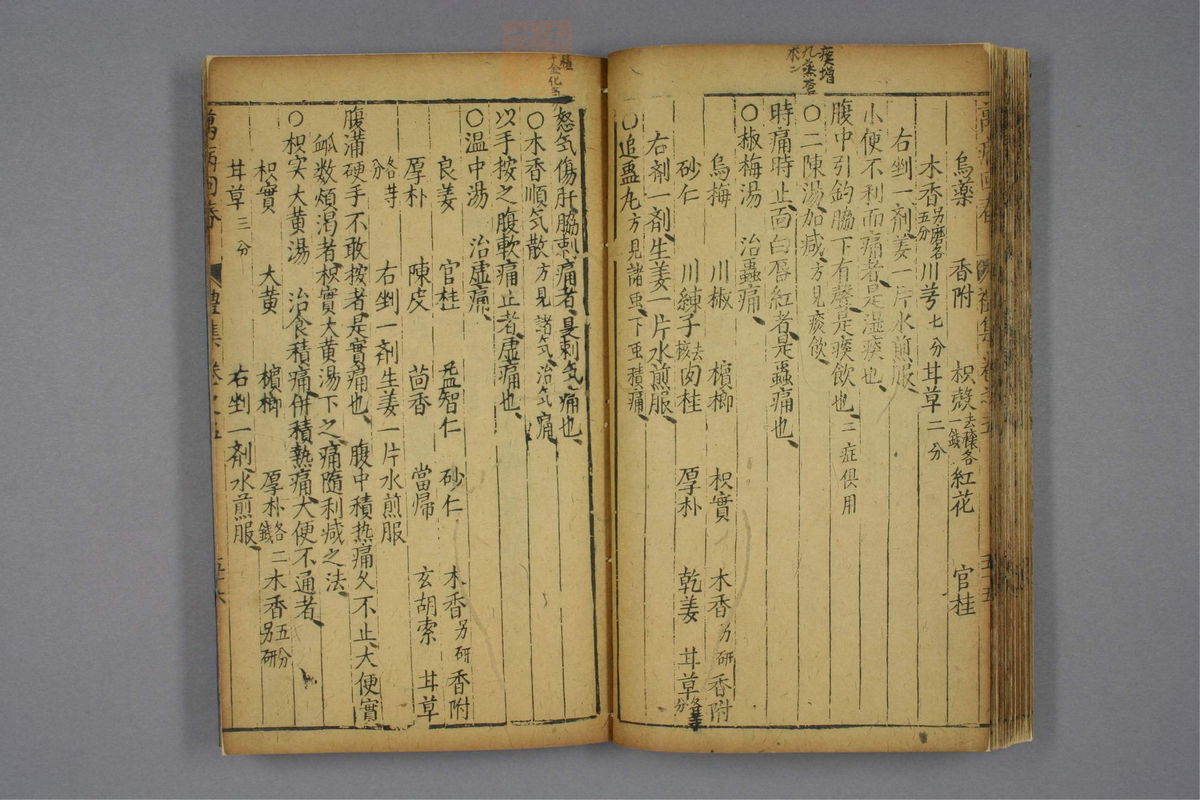 烏藥 香附 枳殼去穰各一錢 紅花 官桂
木香另磨各五分 川芎七分 甘草二分
右剉一劑姜一片水煎服
小便不利而痛者是湿痰也
腹中引鈎脇下有聲是痰飲也 二症俱用
〇二陳湯加减方見痰飲
時痛時止面白唇紅者是蟲痛也
〇椒梅湯 治蟲痛
烏梅 川椒 檳榔 枳實 木香另研 香附
砂仁 川練子去核 肉桂 厚朴 乾姜 甘草各等分
右剤一劑生姜一片水煎服
〇追蟲丸方見諸虫下虫積痛
怒気傷肝脇刺痛者是刺気痛也
〇木香順気散方見諸気治気痛
以手按之腹軟痛止者虛痛也
〇温中湯 治虛痛
良姜 官桂 益智仁 砂仁 木香另研 香附
厚朴 陳皮 茴香 當歸 玄胡索 甘草
各等分 右剉一剤生姜一片水煎服
腹滿硬手不敢按者是實痛也 腹中積热痛久不止大便實
脉数煩渴者枳實大黄湯下之痛隨利减之法
〇枳实大黄湯 治食積痛併積熱痛大便不通者
枳實 大黄 檳榔 厚朴各二錢 木香五分另研
甘草三分 右剉一剤水煎服
萬病回春 禮集 卷之五 五十六